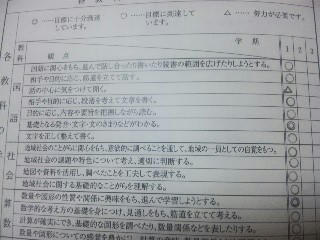 ◎……目標に十分到達しています。
○……目標に到達しています。
△……努力が必要です。
各教科
教科
観点
学期
1 2 3
国語
国語に関心をもち、進んで話し合ったり書いたり読書の範囲を広げたりしようとする。
相手や目的に応じ、筋道を立てて話す。
話の中心に気をつけて聞く。
相手や目的に応じ、段落を考えて文章を書く。
目的に応じ、内容や要旨を把握しながら読む。
基礎となる発音・文字・文のきまりなどがわかる。
文字を正しく整えて書く。
社会
地域社会のことがらに関心をもち、意欲的に調べることを通して、地域の一員としての自覚をもつ。
地域社会の課題や特色について考え、適切に判断する。
地図や資料を活用し、調べたことを工夫して表現する。
地域社会に関する基礎的なことがらを理解する。
算数
数量や図形の性質や関係に興味をもち、進んで学習しようとする。
数学的な考え方の基礎を身につけ、見通しをもち、筋道を立てて考える。
計算が確実にでき、基礎的な図形を調べたり、数量関係などを表したりする。